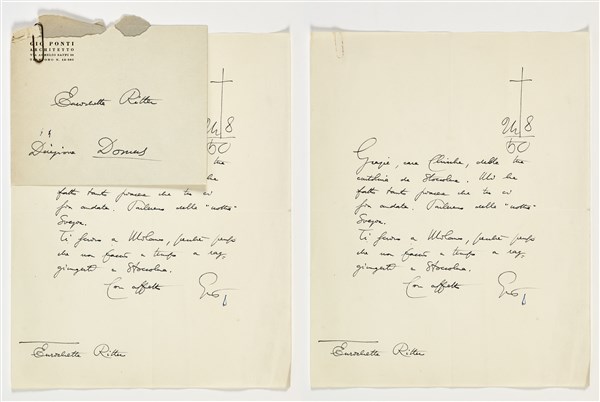 GIO PONTI
ARCHITETTO
Enrichetta Ritter
Direzione Domus
24 8
50
ta
da
fatto tanto piacere che tu ci
sia andata. Parleremo della "nostra"
Svezia.
Ti scrivo a Milano, perché penso
che non faccio a tempo a rag
giungerti a Stoccolma.
Con affetto
Gio
Enrichetta Ritter
24 8
50
Grazie, cara, della tua
cartolina da Stoccolma. Mi ha
fatto tanto piacere che tu ci
sia andata. Parleremo della "nostra"
Svezia.
Ti scrivo a Milano, perché penso
che non faccio a tempo a rag
giungerti a Stoccolma.
Con affetto
Gio
Enrichetta Ritter